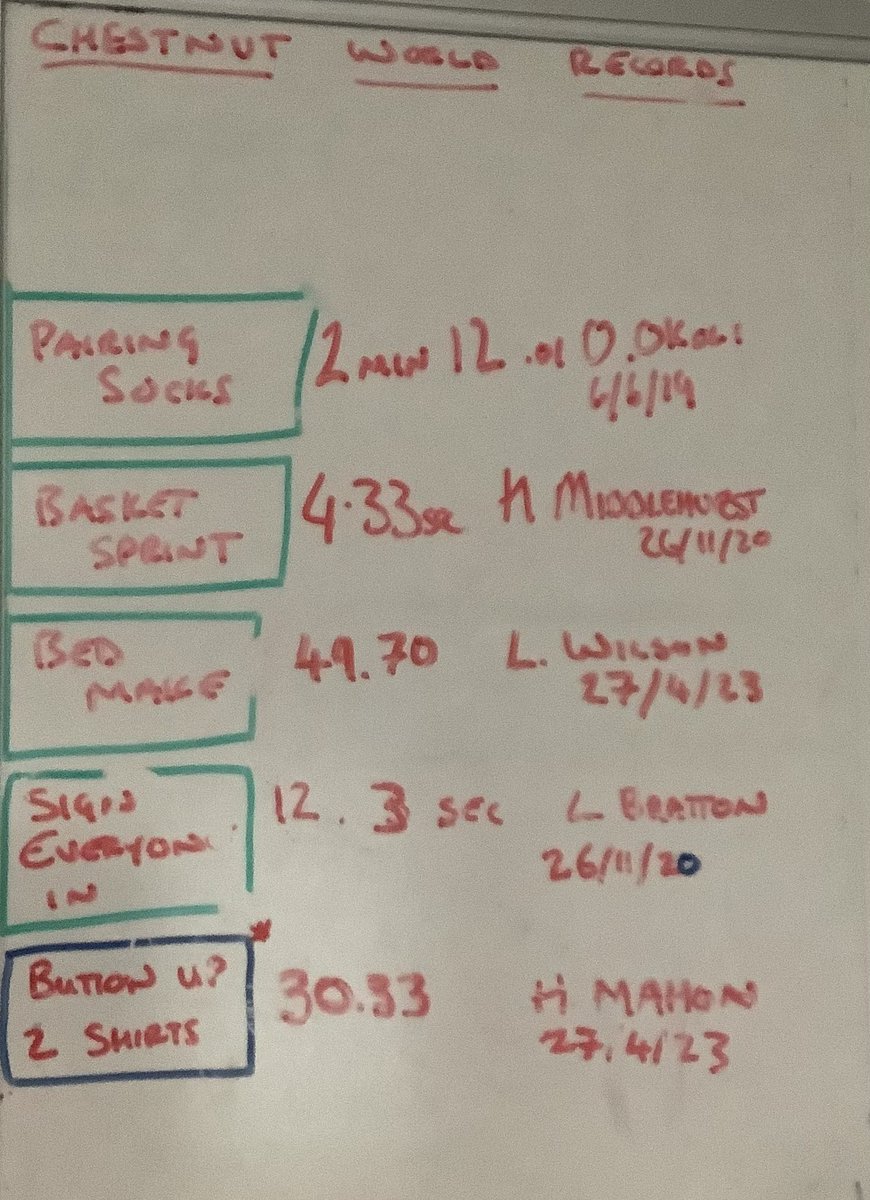 CHESTNUT WORLD RECORDS
PAIRING SOCKS 2 MIN 12.01 O.OKOGI
6/6/19
BASKET SPRINT 4.33 sec H MIDDLEHURST
26/11/20
BED MAKE 49.70 L. WILSON
27/4/23
SIGN EVERYONE IN 12.3 SEC L BRATTON
26/11/20
BUTTON UP 2 SHIRTS 30.33 H MAHON
27.4/23